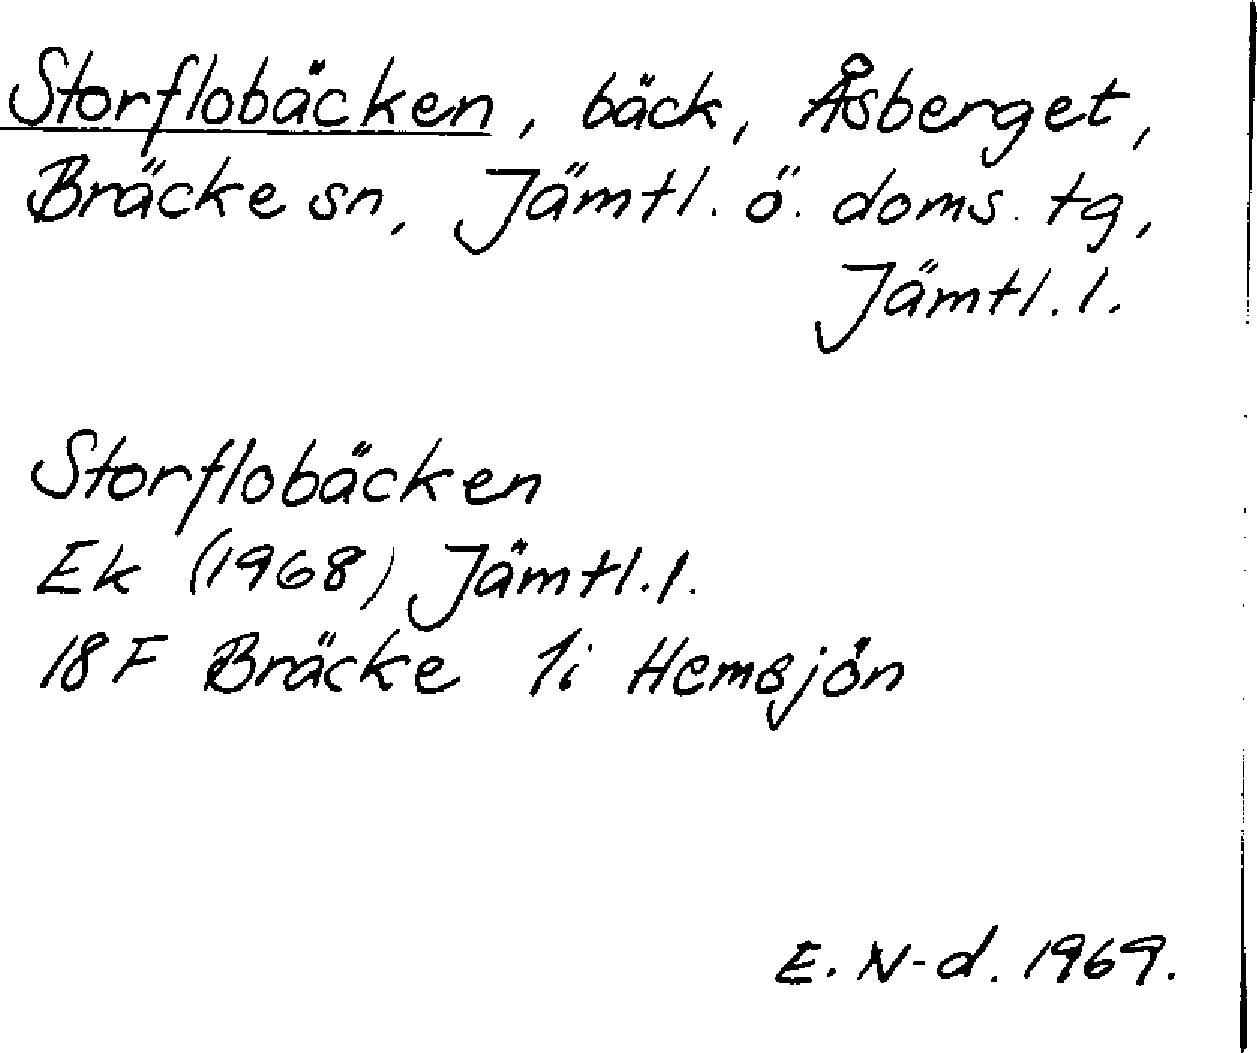 Storflobäcken, bäck, Åsberget,
Bräcke sn, Jämtl. ö. doms. tg,
Jämtl. l.
Storflobäcken
Ek (1968) Jämtl. l.
18F Bräcke 1i Hemsjön
E. N-d. 1969.